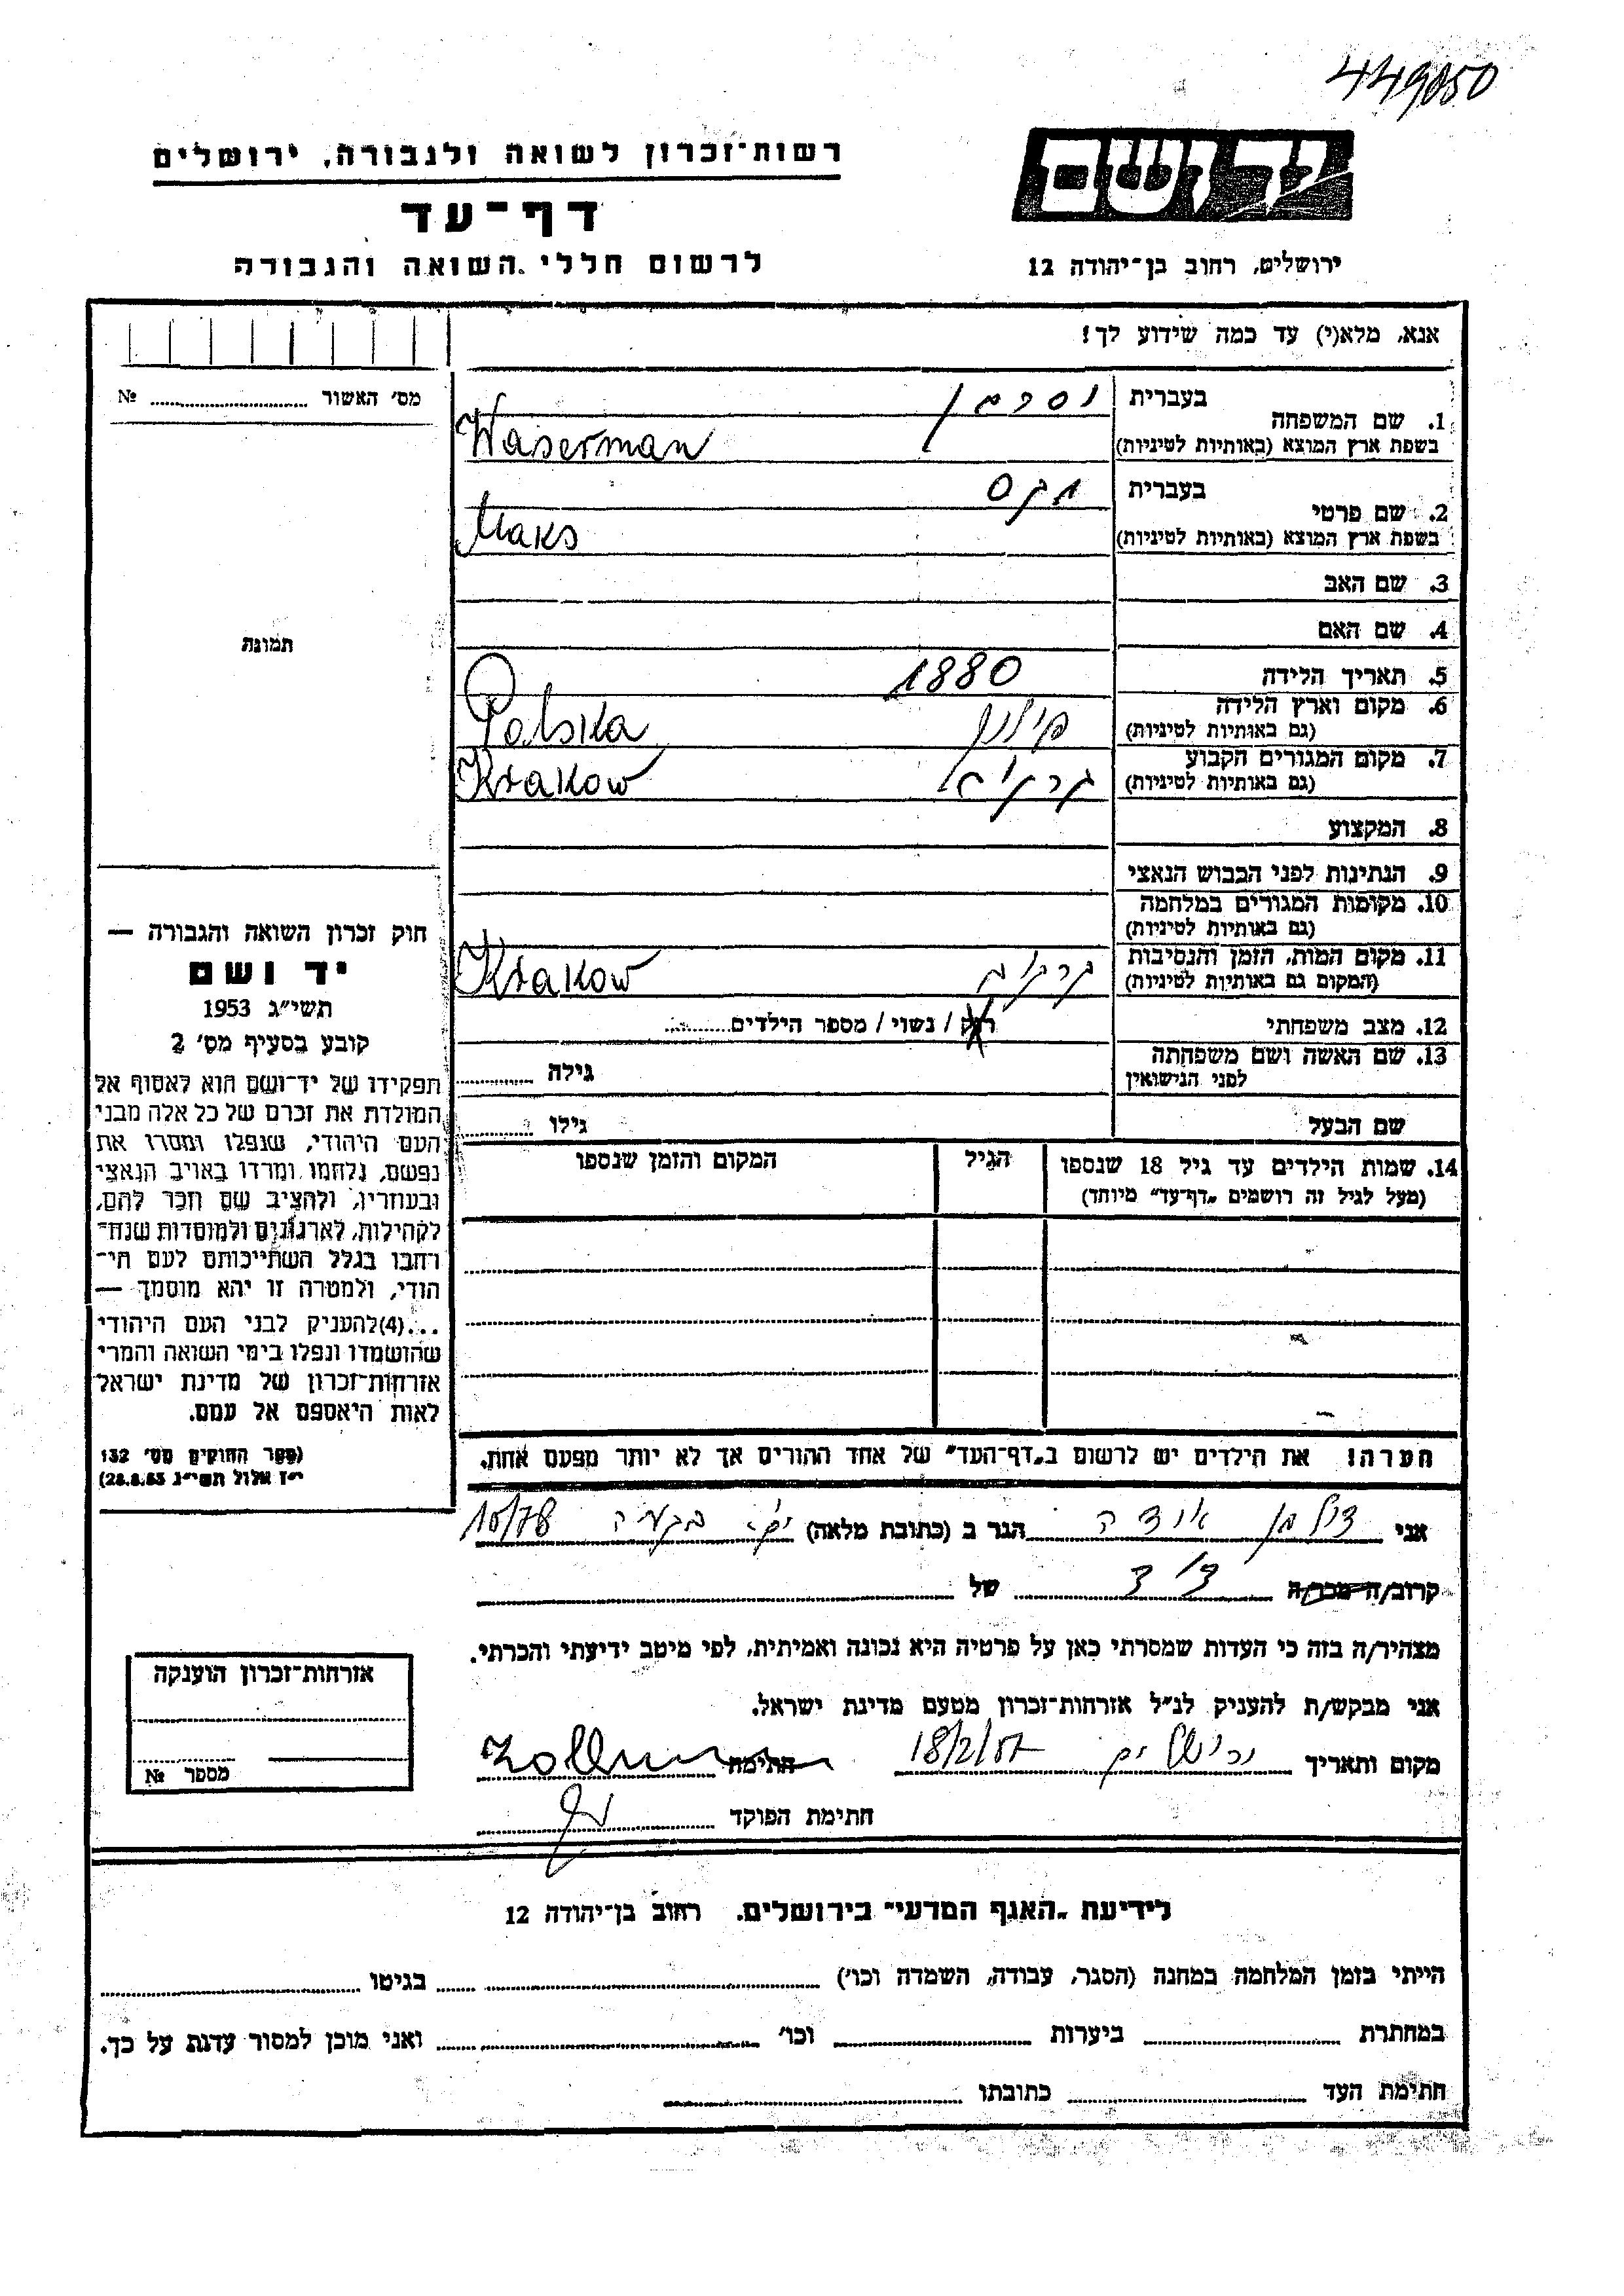 449050
רשות־זכרון לשואה ולגבורה, ירושלים
יד ושם
דף־עד
לרשום חללי השואה והגבורה
ירושלים, רחוב בן־יהודה 12
אנא, מלא(י) עד כמה שידוע לך!
מס׳ האשור № ........
1. שם המשפחה
בעברית וסרמן
בשפת ארץ המוצא (באותיות לטיניות) Waserman
2. שם פרטי
בעברית מקס
בשפת ארץ המוצא (באותיות לטיניות) Maks
3. שם האב
4. שם האם
תמונה
5. תאריך הלידה 1880
6. מקום וארץ הלידה פולין Polska
(גם באותיות לטיניות)
7. מקום המגורים הקבוע Krakow
(גם באותיות לטיניות)
8. המקצוע
9. הנתינות לפני הכבוש הנאצי
10. מקומות המגורים במלחמה
(גם באותיות לטיניות)
11. מקום המות, הזמן והנסיבות Krakow
(המקום גם באותיות לטיניות)
12. מצב משפחתי רוק / נשוי / מספר הילדים........
13. שם האשה ושם משפחתה גילה ........
לפני הנישואין
שם הבעל גילו ........
14. שמות הילדים עד גיל 18 שנספו הגיל המקום והזמן שנספו
(מעל לגיל זה רושמים „דף־עד” מיוחד)
חוק זכרון השואה והגבורה —
יד ושם
תשי״ג 1953
קובע בסעיף מס׳ 2
תפקידו של יד־ושם הוא לאסוף אל
המולדת את זכרם של כל אלה מבני
העם היהודי, שנפלו ומסרו את
נפשם, נלחמו ומרדו באויב הנאצי
ובעוזריו, ולהציב שם וזכר להם,
לקהילות, לארגונים ולמוסדות שנח־
רבו בגלל השתייכותם לעם הי־
הודי, ולמטרה זו יהא מוסמך —
...(4)להעניק לבני העם היהודי
שהושמדו ונפלו בימי השואה והמרי
אזרחות־זכרון של מדינת ישראל
לאות היאספם אל עמם.
(ספר החוקים מס׳ 132
י״ז אלול תשי״ג 28.8.53)
הערה! את הילדים יש לרשום ב„דף־העד” של אחד ההורים אך לא יותר מפעם אחת.
אני הגר ב (כתובת מלאה) 10/78
קרוב/ה מכר/ה של
מצהיר/ה בזה כי העדות שמסרתי כאן על פרטיה היא נכונה ואמיתית, לפי מיטב ידיעתי והכרתי.
אני מבקש/ת להעניק לנ״ל אזרחות־זכרון מטעם מדינת ישראל.
מקום ותאריך ירושלים חתימה
חתימת הפוקד
אזרחות־זכרון הוענקה
מספר №
לידיעת „האגף המדעי” בירושלים. רחוב בן־יהודה 12
הייתי בזמן המלחמה במחנה (הסגר, עבודה, השמדה וכו׳) ........ בגיטו ........
במחתרת ........ ביערות ........ וכו׳ ........ ואני מוכן למסור עדות על כך.
חתימת העד ........ כתובתו ........